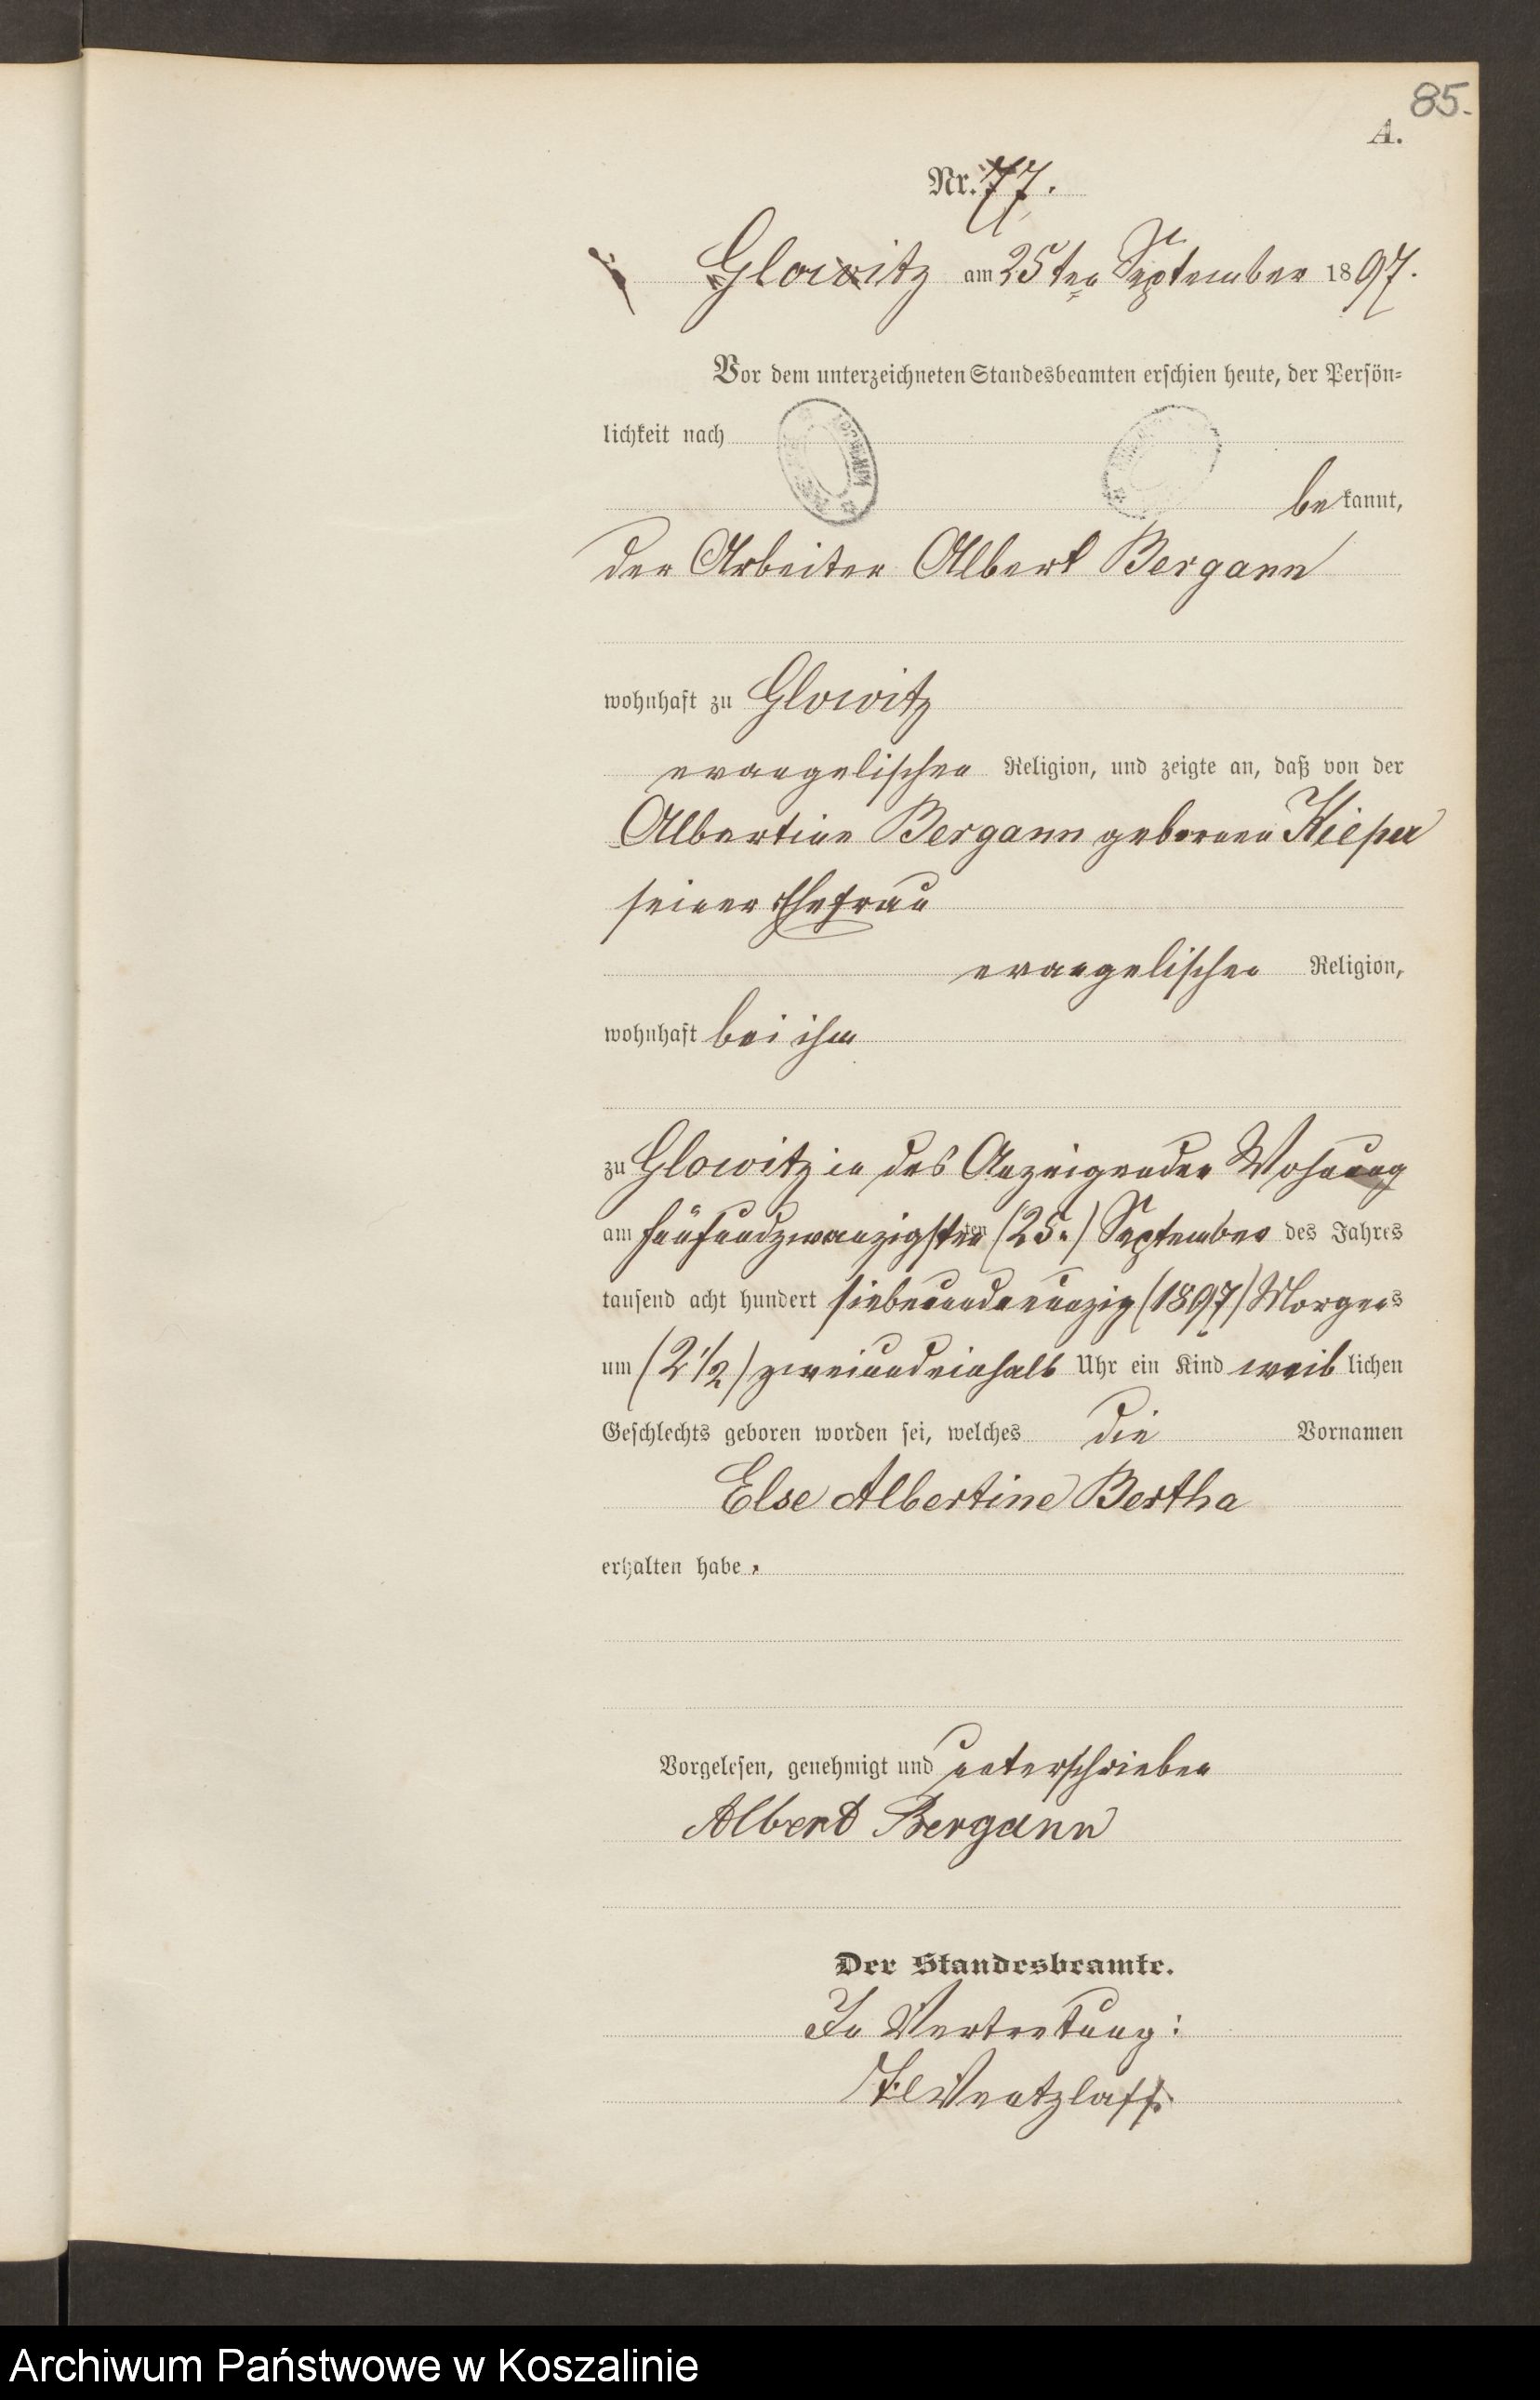 85.
A.
Nr. 77.
Glowitz am 25ten September 1897.
Vor dem unterzeichneten Standesbeamten erschien heute, der Persön-
lichkeit nach
bekannt,
der Arbeiter Albert Bergann
wohnhaft zu Glowitz
evangelischen Religion, und zeigte an, daß von der
Albertine Bergann geborenen Kieper
seiner Ehefrau
evangelischen Religion,
wohnhaft bei ihm
zu Glowitz in des Anzeigenden Wohnung
am fünfundzwanzigsten (25.) September des Jahres
tausend acht hundert siebenundneunzig (1897) Morgens
um (2 1/2) zweiundeinhalb Uhr ein Kind weiblichen
Geschlechts geboren worden sei, welches die Vornamen
Else Albertine Bertha
erhalten habe.
Vorgelesen, genehmigt und unterschrieben
Albert Bergann
Der Standesbeamte.
In Vertretung:
Wentzlaff
Archiwum Państwowe w Koszalinie